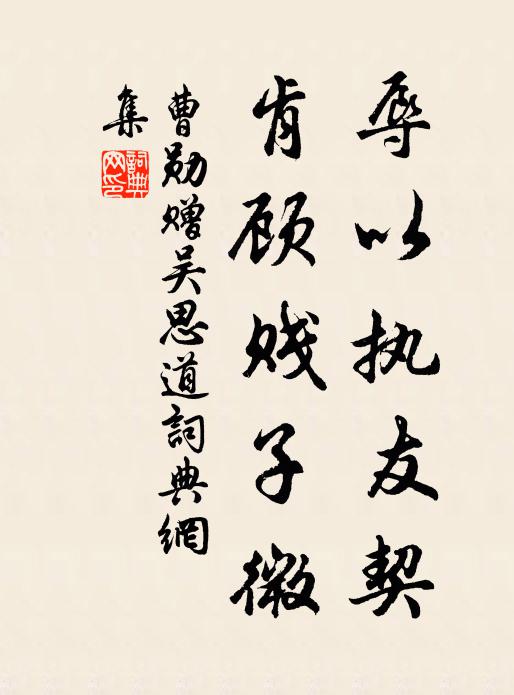 辱以执友契
肯顾贱子微
曹勋赠吴思道詞典網
集
詞典
网印